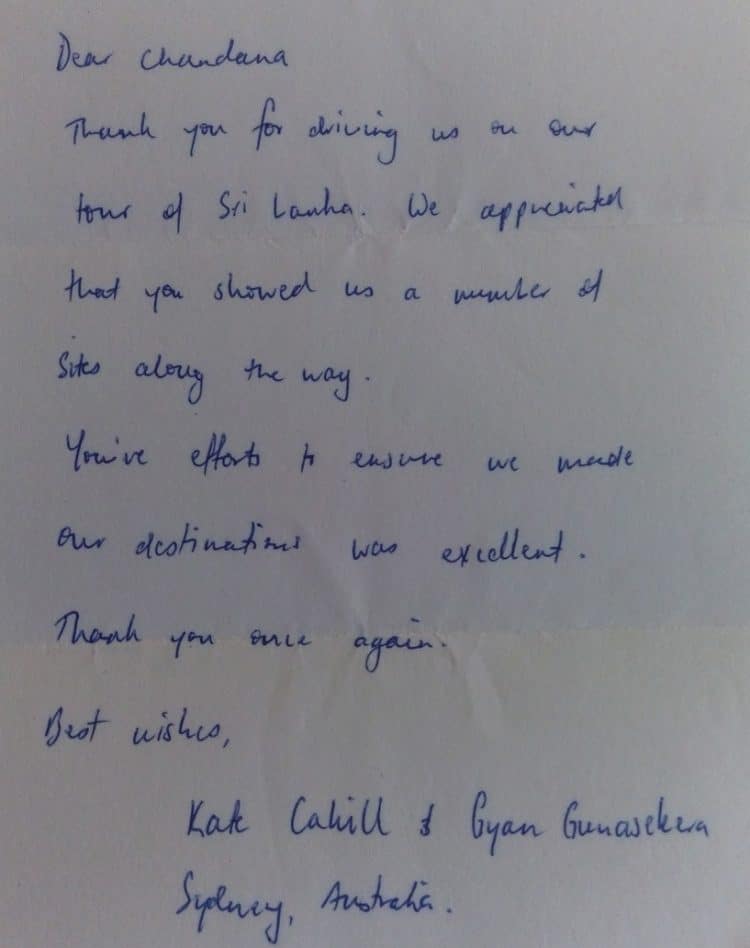 Dear Chandana
Thank you for driving us on our
tour of Sri Lanka. We appreciated
that you showed us a number of
sites along the way.
You've efforts to ensure we made
our destinations was excellent.
Thank you once again.
Best wishes,
Kate Cahill & Gyan Gunasekera
Sydney, Australia.